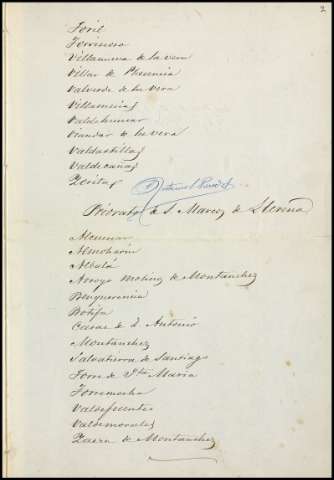 2
Toril
Torviscoso
Villanueva de la vera
Villar de Plasencia
Valverde de la vera
Villamesías
Valdehuncar
Viandar de la vera
Valdastillas
Valdecañas
Zorita
Priorato de S. Marcos de Llerena
Alcuescar
Almoharin
Albalá
Arroyo molinos de Montanchez
Benquerencia
Botija
Casas de D. Antonio
Montanchez
Salvatierra de Santiago
Torre de Sta Maria
Torremocha
Valdefuentes
Valdemorales
Zarza de Montanchez